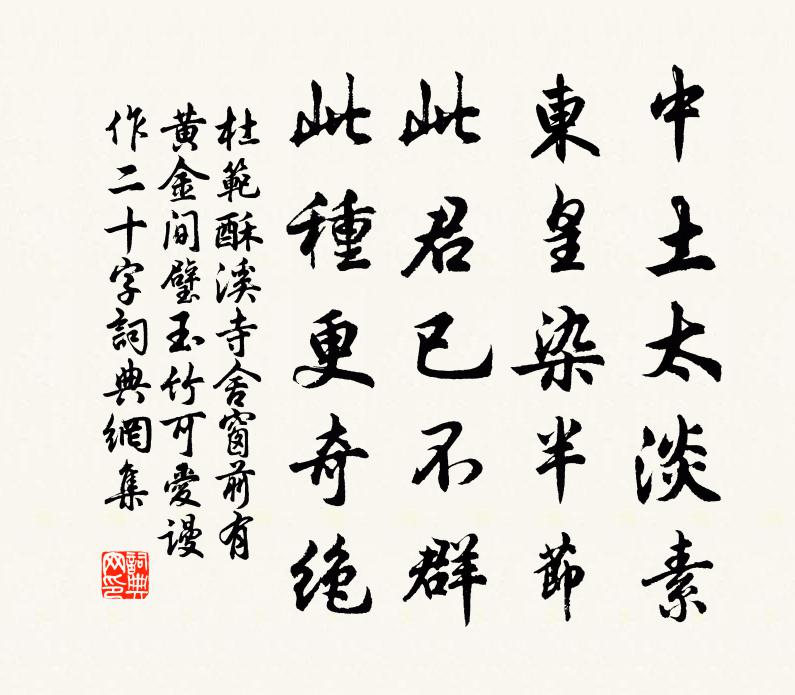 中土太淡素
東皇染半節
此君已不群
此種更奇絶
杜範酥溪寺舍窗前有
黃金间璧玉竹可愛謾
作二十字詞典網集
詞典
网印